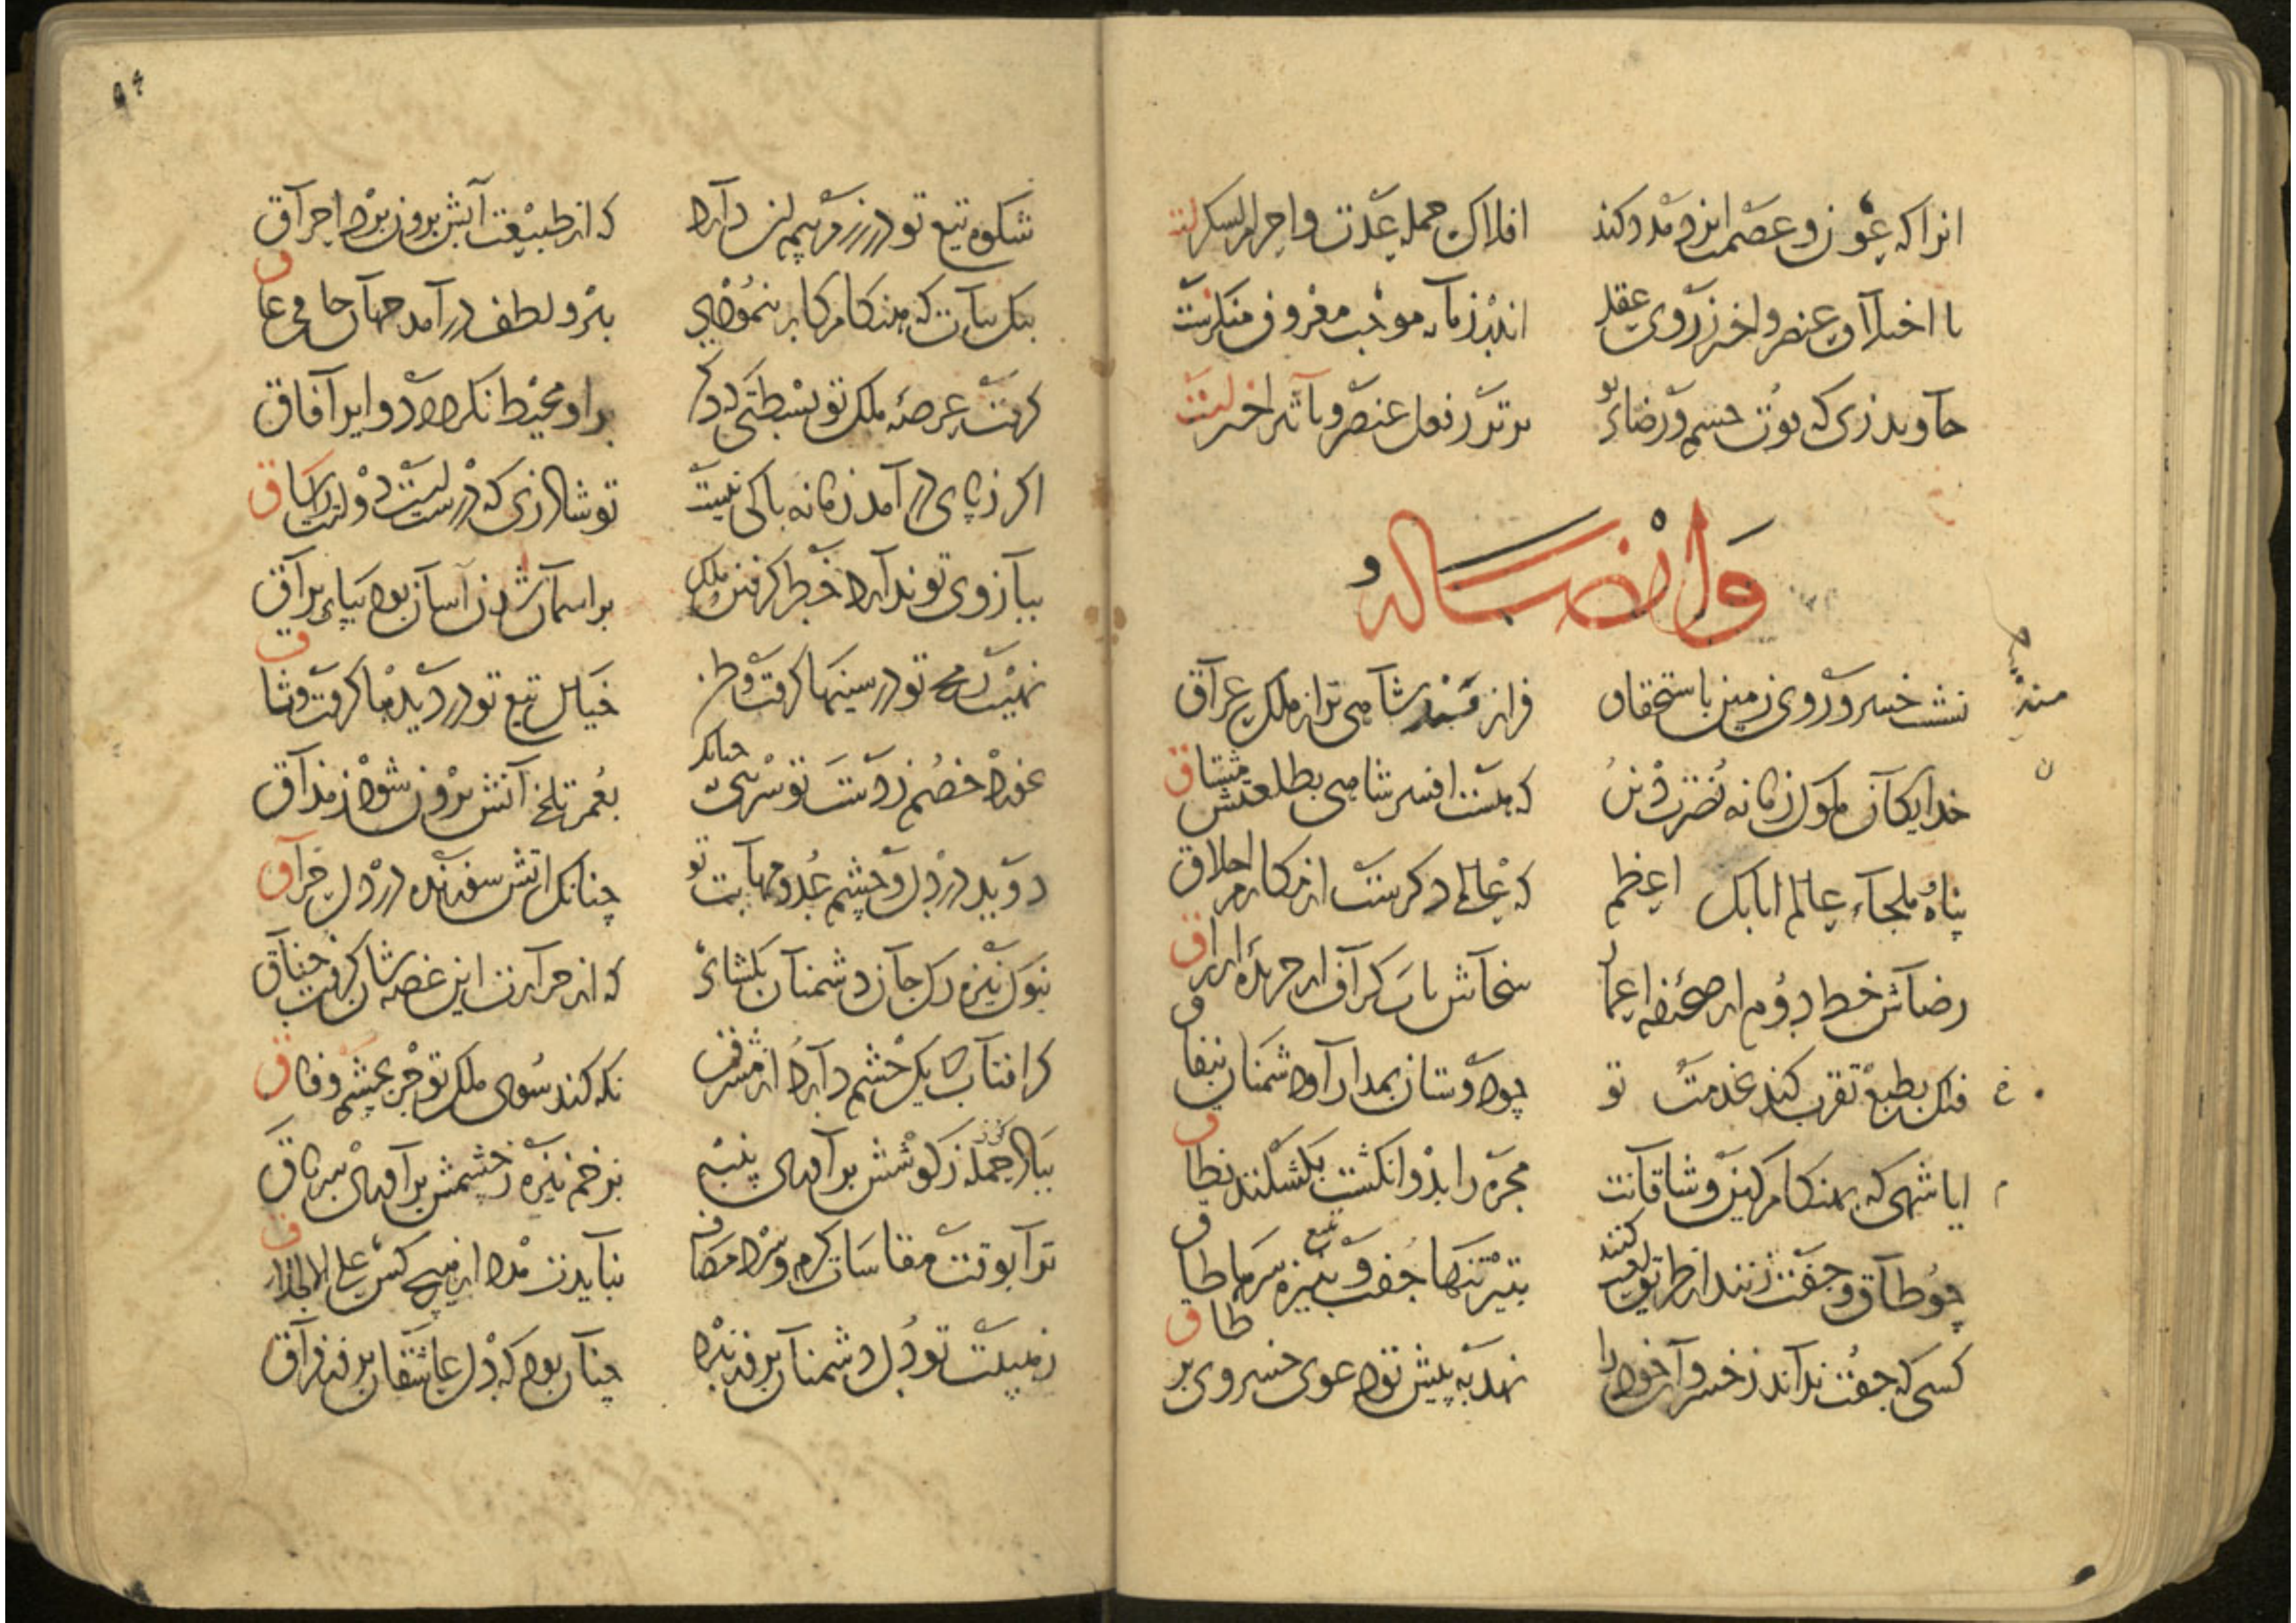 انرا که عون و عصمت ایزد مدد کند افلاک جمله عدت و اجرام لشکرست
با اختلاف عنصر و اختر ز روی عقل اندر زمانه موجب معروف منکرست
جاوید زی که بوت جسم و رضاء تو برتر ز فعل عنصر و تاثیر اخترست
وایضاً له
نشست خسرو روی زمین باستحقاق فراز مسند شاهی برار ملک عراق
خدایکان ملوک زمانه نصرت دین که هست افسر شاهی بطلعتش مشتاق
پناه و ملجاء عالم اتابک اعظم که عالمی دکرست از مکارم اخلاق
رضاش خط دوم از صحیفه اعمال سخاش باب کراف از جریده ارزاق
فلک بطبع تقرب کند بخدمت تو چو دوستان بمدارا و دشمنان بنفاق
ایا شهی که بهنکام کین وشاقانت مجره را بدو انکشت بکسلند نطاق
چو طاق و جفت زنند از طریق لعب کنند بتیر تنها جفت و بتیغ سرها طاق
کسی که جفت نداند ز خسروان خود را نهد به پیش تو دعوی خسروی بر طاق
شکوه تیغ تو در رزم هم لزن دارد که از طبیعت آتش برون برد احراق
بنکان که بهنکام کار بنموذی بتر و لطف در آمد جهان جافی عاق
کرفت عرصه ملک تو بسطتی که دکر برو محیط نکردد دوایر آفاق
اکر ز پای در آمد زمانه باکی نیست تو شاد زی که درستست دولترا ساق
ببازوی تو ندارد خطر کرفتن ملک بر اسمان شدن آسان بود بپای براق
نهیب رمح تو در سینها کرفت وطن خیال تیغ تو در دیدها کرفت وثاق
خورد خصم ز دست تو شربتی چنانک بعمر تلخی آتش برون شود ز مذاق
دوید در دل و چشم عدو مهابت تو چنانک اتش سوزنده در دل حراق
بنوک نیزه رک جان دشمنان بکشاء که از حرارت این غصه شان کرفت خناق
کر افتاب که یک چشم دارد از مشرق نکه کند سوی ملک تو جز بچشم وفاق
ببالاجمله ز کوشش بر آوری پنبه بزخم نیزه ز چشمش بر آوری سماق
ترا بوقت مقاسات کرم و سرد مصاف نباید مدد از هیچ کس علی الاطلاق
ز هیبت تو دل دشمنان بر فروزد چنان بود که دل عاشقان بروز فراق